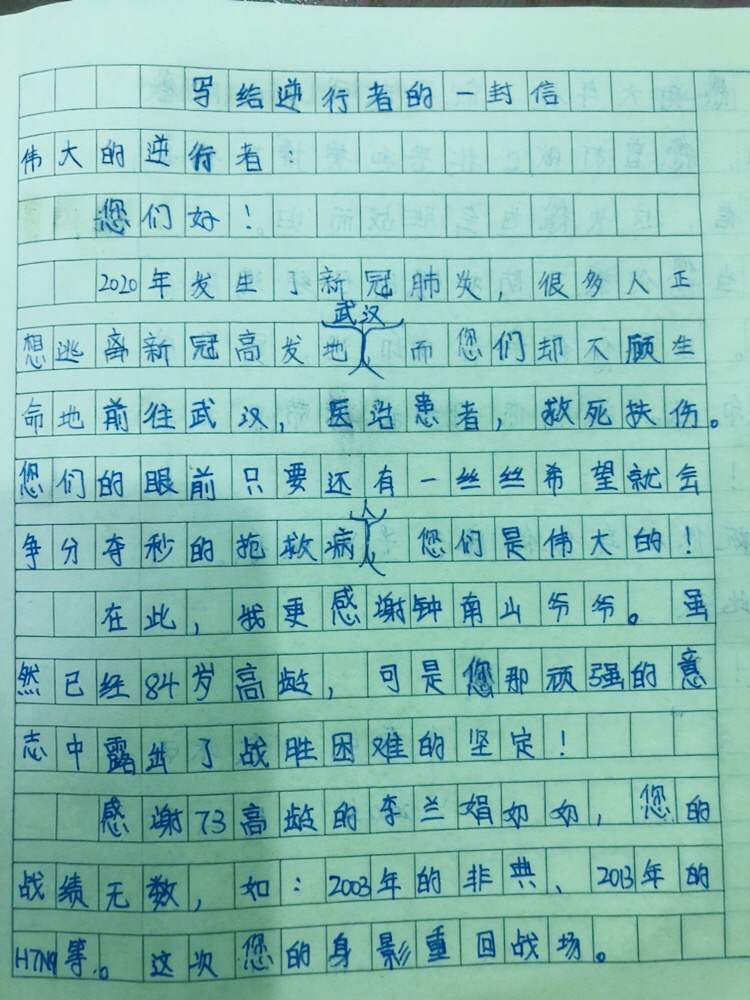 写给逆行者的一封信
伟大的逆行者：
您们好！
2020年发生了新冠肺炎，很多人正
想逃离新冠高发地武汉，而您们却不顾生
命地前往武汉，医治患者，救死扶伤。
您们的眼前只要还有一丝丝希望就会
争分夺秒的抢救病人，您们是伟大的！
在此，我更感谢钟南山爷爷。虽
然已经84岁高龄，可是您那顽强的意
志中露出了战胜困难的坚定！
感谢73高龄的李兰娟奶奶，您的
战绩无数，如：2003年的非典、2013年的
H7N9等。这次您的身影重回战场。